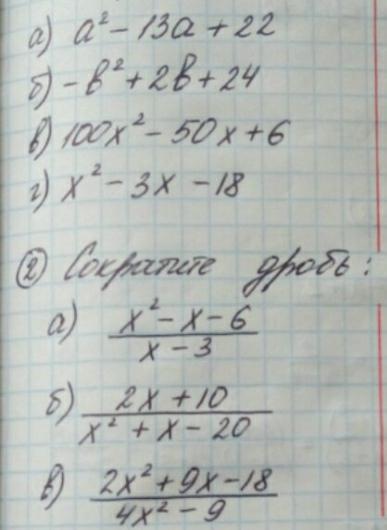 а) a² - 13a + 22
б) -b² + 2b + 24
в) 100x² - 50x + 6
г) x² - 3x - 18
② Сократите дробь:
а) (x² - x - 6)/(x - 3)
б) (2x + 10)/(x² + x - 20)
в) (2x² + 9x - 18)/(4x² - 9)